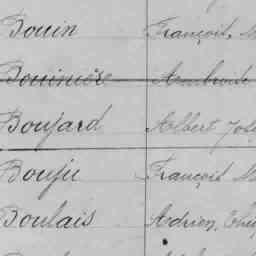 Bouin François, M
Bouinière Ambroise
Boujard Albert Jos
Bouju François M
Boulais Adrien,